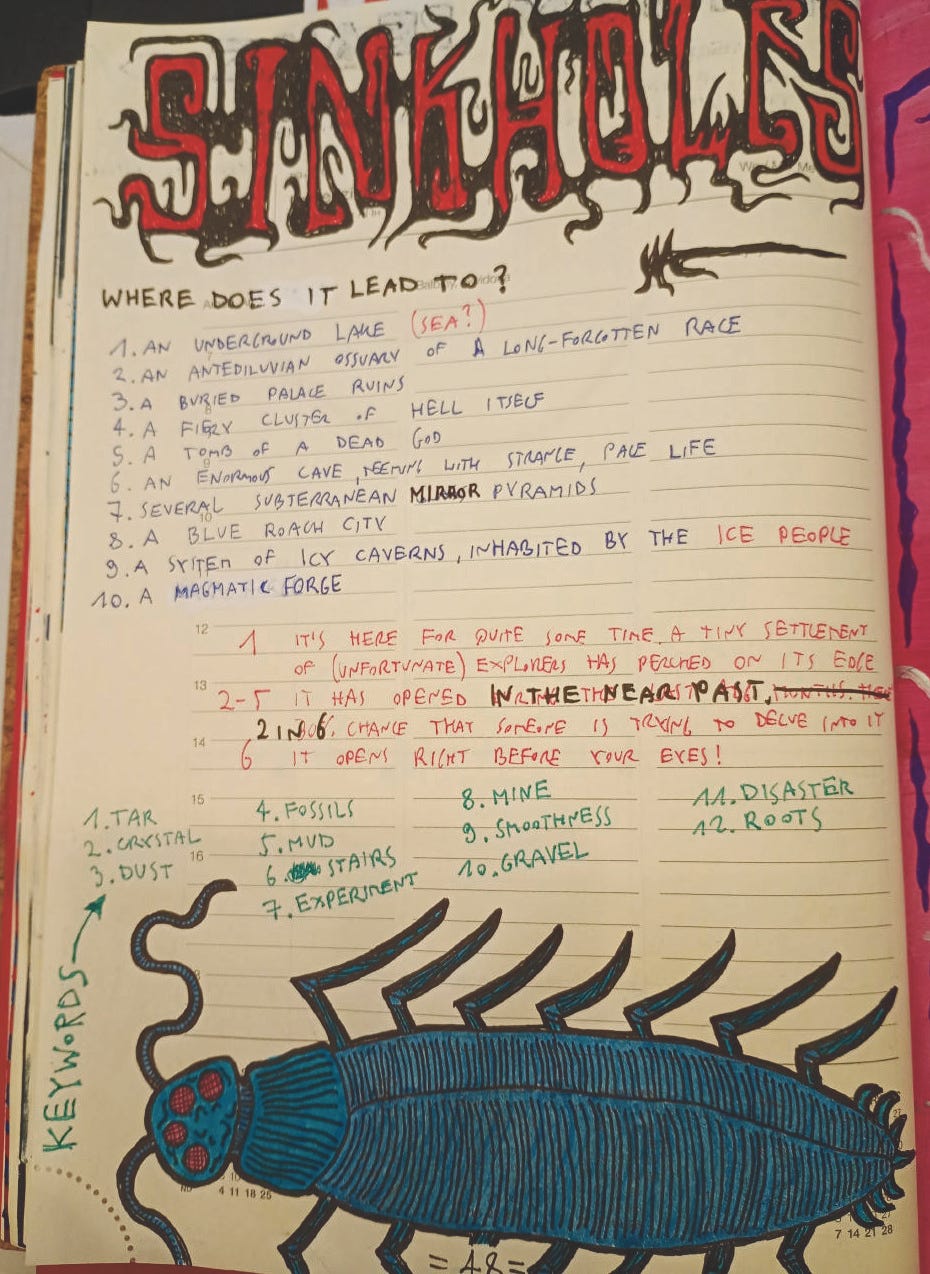 SINKHOLES
WHERE DOES IT LEAD TO?
1. AN UNDERGROUND LAKE (SEA?)
2. AN ANTEDILUVIAN OSSUARY OF A LONG-FORGOTTEN RACE
3. A BURIED PALACE RUINS
4. A FIERY CLUSTER OF HELL ITSELF
5. A TOMB OF A DEAD GOD
6. AN ENORMOUS CAVE, TEEMING WITH STRANGE, PALE LIFE
7. SEVERAL SUBTERRANEAN MIRROR PYRAMIDS
8. A BLUE ROACH CITY
9. A SYSTEM OF ICY CAVERNS, INHABITED BY THE ICE PEOPLE
10. A MAGMATIC FORGE
12
1 IT'S HERE FOR QUITE SOME TIME. A TINY SETTLEMENT
OF (UNFORTUNATE) EXPLORERS HAS PERCHED ON ITS EDGE
13
2-5 IT HAS OPENED IN THE NEAR PAST,
2 IN 6 CHANCE THAT SOMEONE IS TRYING TO DELVE INTO IT
14
6 IT OPENS RIGHT BEFORE YOUR EYES!
15
16
1. TAR
2. CRYSTAL
3. DUST
4. FOSSILS
5. MUD
6. STAIRS
7. EXPERIMENT
8. MINE
9. SMOOTHNESS
10. GRAVEL
11. DISASTER
12. ROOTS
KEYWORDS
4 11 18 25
7 14 21 28
= 48 =